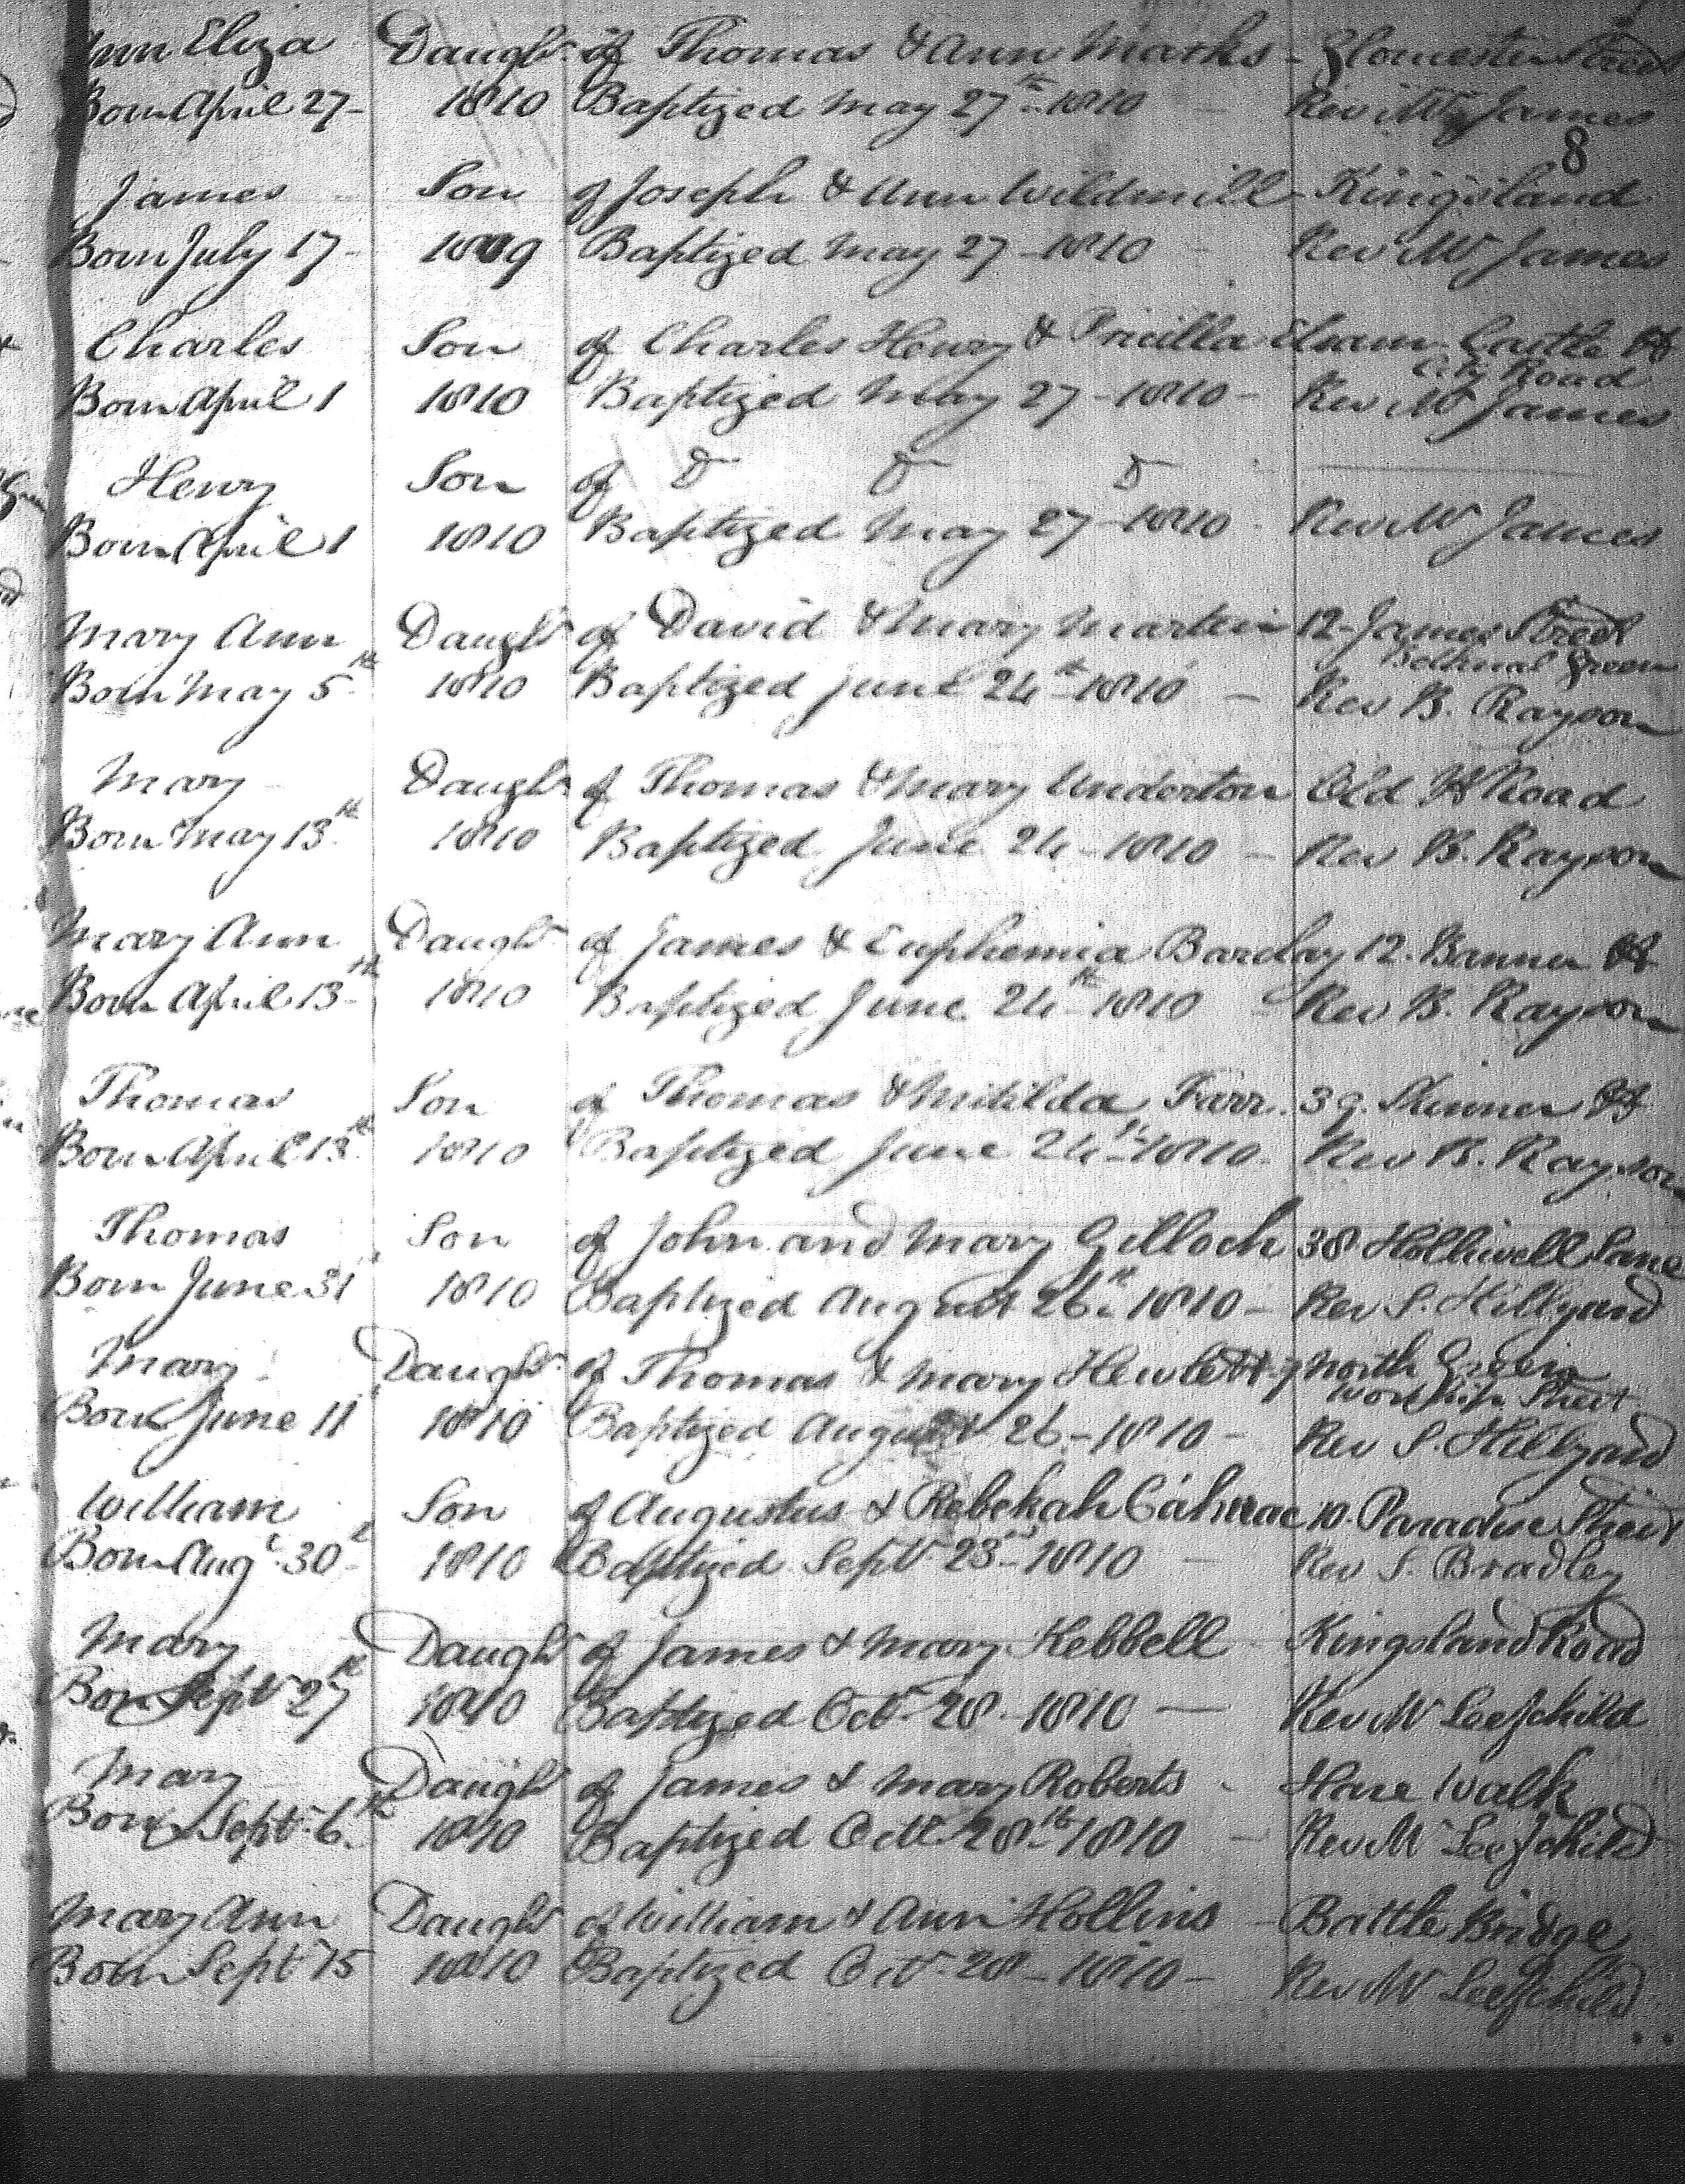 Ann Eliza Daughr. of Thomas & Ann Marks - Gloucester Street
Born April 27 - 1810 Baptized May 27th - 1810 - Rev Mr James
8
James Son of Joseph & Ann Wildmill - Kingsland
Born July 17 - 1809 Baptized May 27 - 1810 - Rev Mr James
Charles Son of Charles Henry & Pricilla Elvam Castle St
City Road
Born April 1 1810 Baptized May 27 - 1810 - Rev Mr James
Henry Son of Do Do Do
Born April 1 1810 Baptized May 27 - 1810 - Rev Mr James
Mary Ann Daughr of David & Mary Martin 12 James Street
Bethnal Green
Born May 5th 1810 Baptized June 24th 1810 - Rev B. Rayson
Mary Daughr. of Thomas & Mary Underton Old St Road
Born May 13th 1810 Baptized June 24 - 1810 - Rev B. Rayson
Mary Ann Daughr of James & Euphemia Barclay 12. Banner St
Born April 13th 1810 Baptized June 24th 1810 - Rev B. Rayson
Thomas Son of Thomas & Mitilda Farr. 39. Skinner St
Born April 13th 1810 Baptized June 24th - 1810 - Rev B. Rayson
Thomas Son of John and Mary Gilloch 38 Holliwell Lane
Born June 31 1810 Baptized August 26th 1810 - Rev S. Hillyard
Mary Daughr of Thomas & Mary Hewlett 7 North Green
Worship Street
Born June 11 1810 Baptized August 26 - 1810 - Rev S. Hillyard
William Son of Augustus & Rebekah Cahusac 10. Paradise Street
Born Augt. 30 1810 Baptized Sept. 23rd - 1810 - Rev S. Bradley
Mary Daughr of James & Mary Kebbell Kingsland Road
Born Sept 27th 1810 Baptized Octr 28 - 1810 - Rev Mr Leefchild
Mary Daughr of James & Mary Roberts Hare Walk
Born Sept. 6th 1810 Baptized Octr. 28th 1810 - Rev Mr Leefchild
Mary Ann Daughr of William & Ann Hollins - Battle Bridge
Born Sept 15 1810 Baptized Octr 28 - 1810 - Rev Mr Leefchild